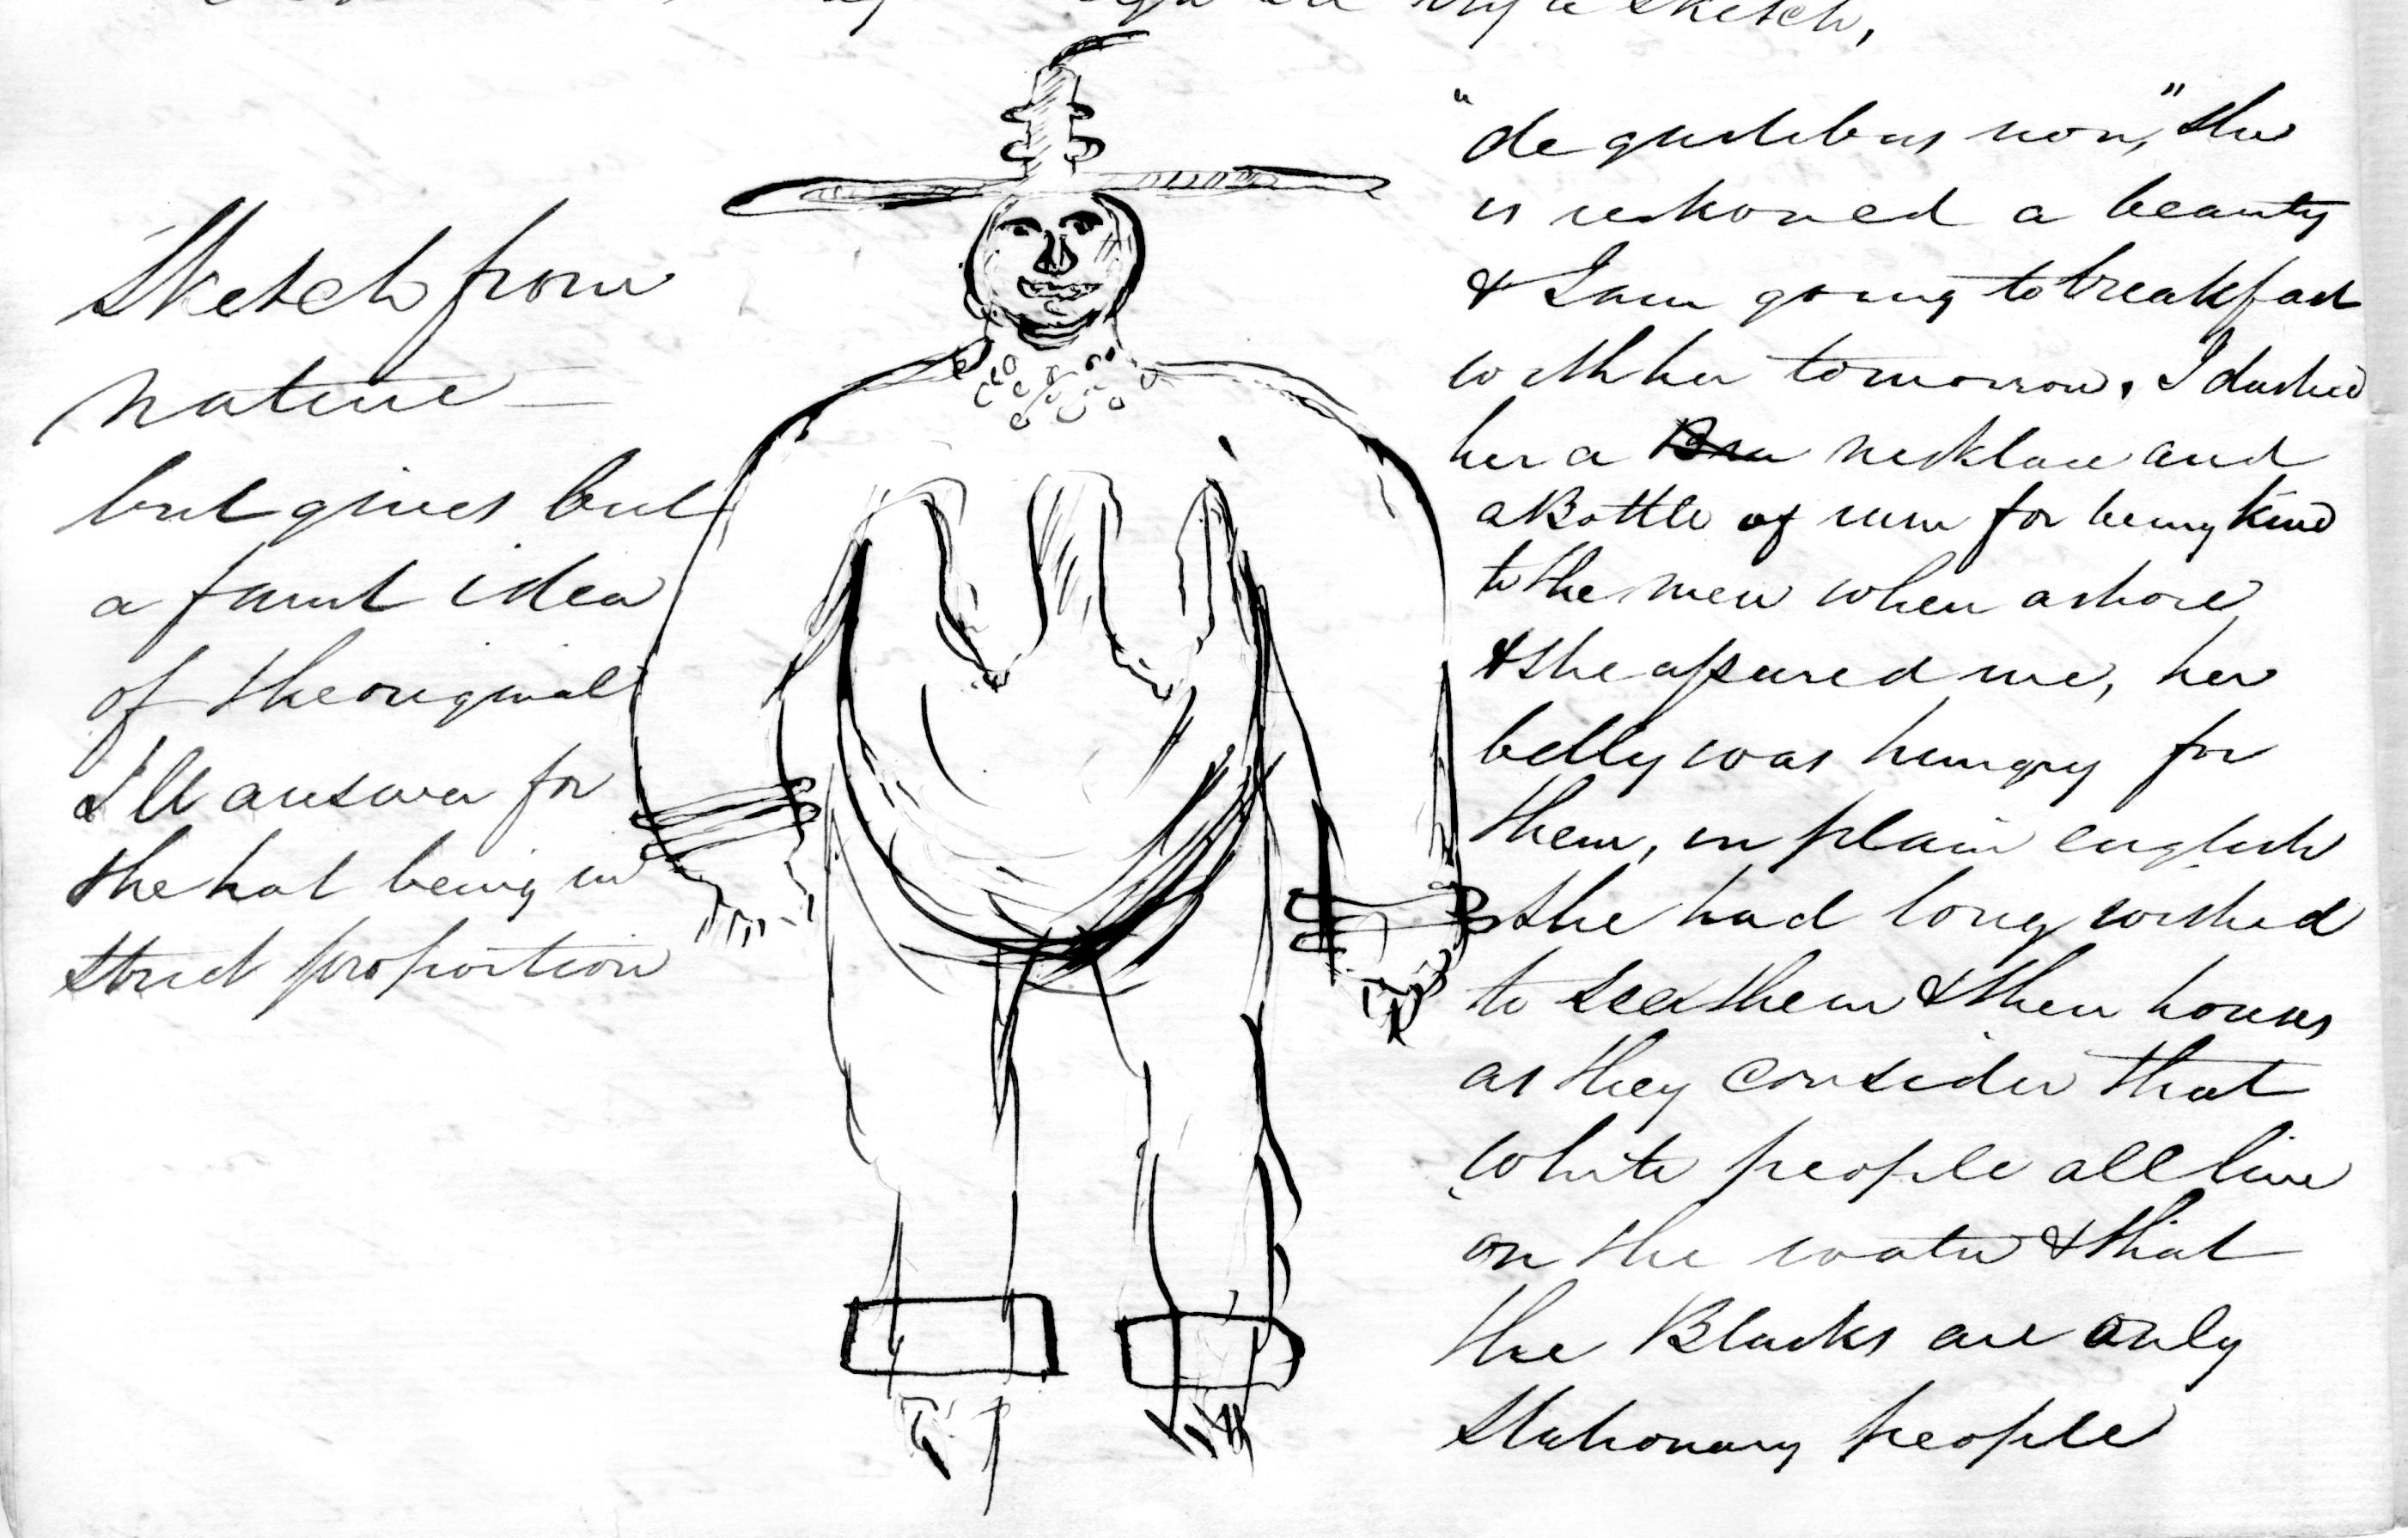 try a sketch,
Sketch from
nature —
but gives but
a faint idea
of the original
I'll answer for
the hat being in
strict proportion
"de gustibus non," she
is reckoned a beauty
& I am going to breakfast
with her tomorrow. I dashed
her a necklace and
a Bottle of rum for being kind
to the men when ashore
& she assured me, her
belly was hungry for
them, in plain english
she had long wished
to see them & their houses
as they consider that
white people all live
on the water & that
the Blacks are only
stationary people